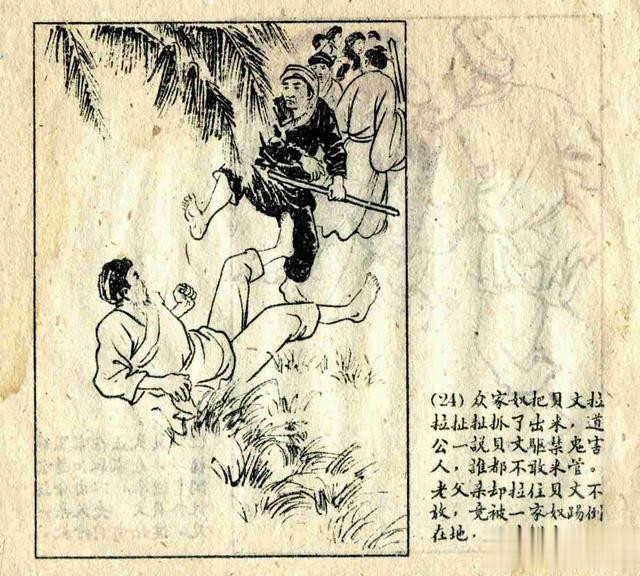 (24) 众家奴把貝文拉
拉扯扯抓了出来，道
公一説貝文駆禁鬼害
人，誰都不敢来管。
老父亲却拉住貝文不
放，竟被一家奴踢倒
在地．